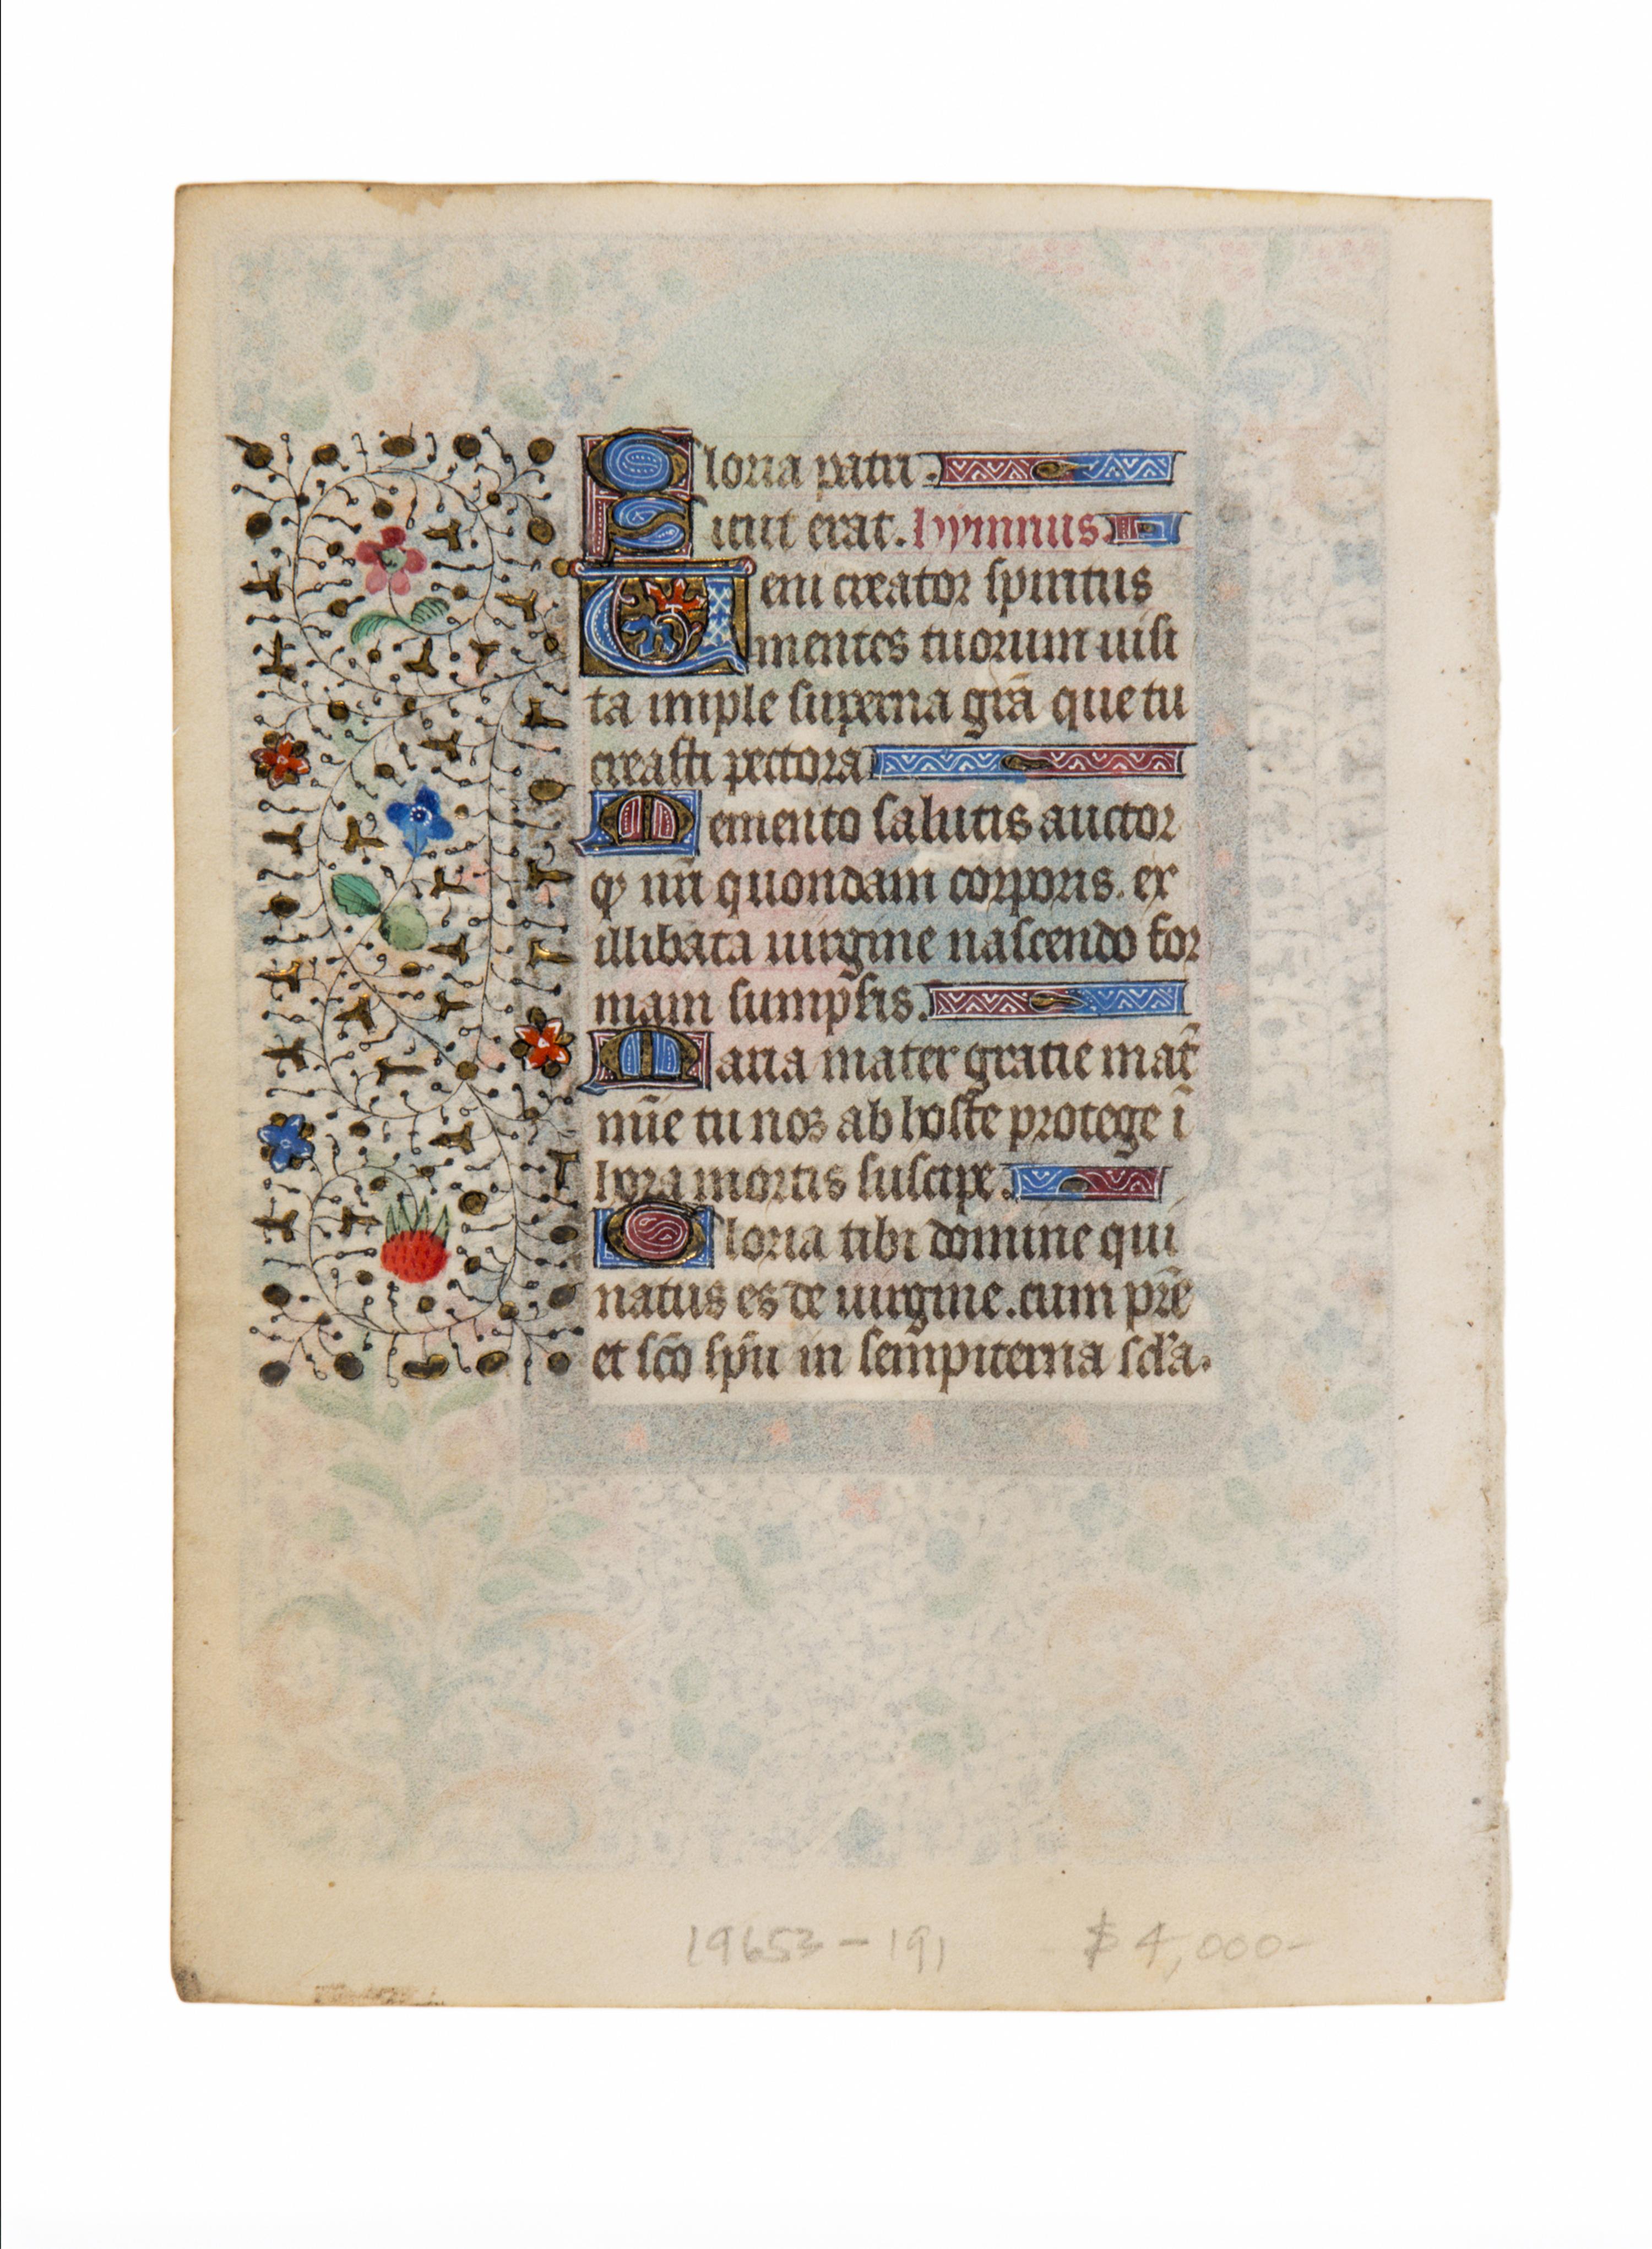 Gloria patri.
Sicut erat. hymnus
Ueni creator spiritus
mentes tuorum uisi
ta imple superna gr̄a que tu
creasti pectora
Memento salutis auctor
qͥ nr̄i quondam corporis. ex
illibata uirgine nascendo for
mam sumpsis.
Maria mater gratie mat̄
mīe tu nos ab hoste protege ī
hora mortis suscipe.
Gloria tibi domine qui
natus es de uirgine. cum pr̄e
et sc̄o sp̄u in sempiterna scl̄a.
19653-191 $4,000-